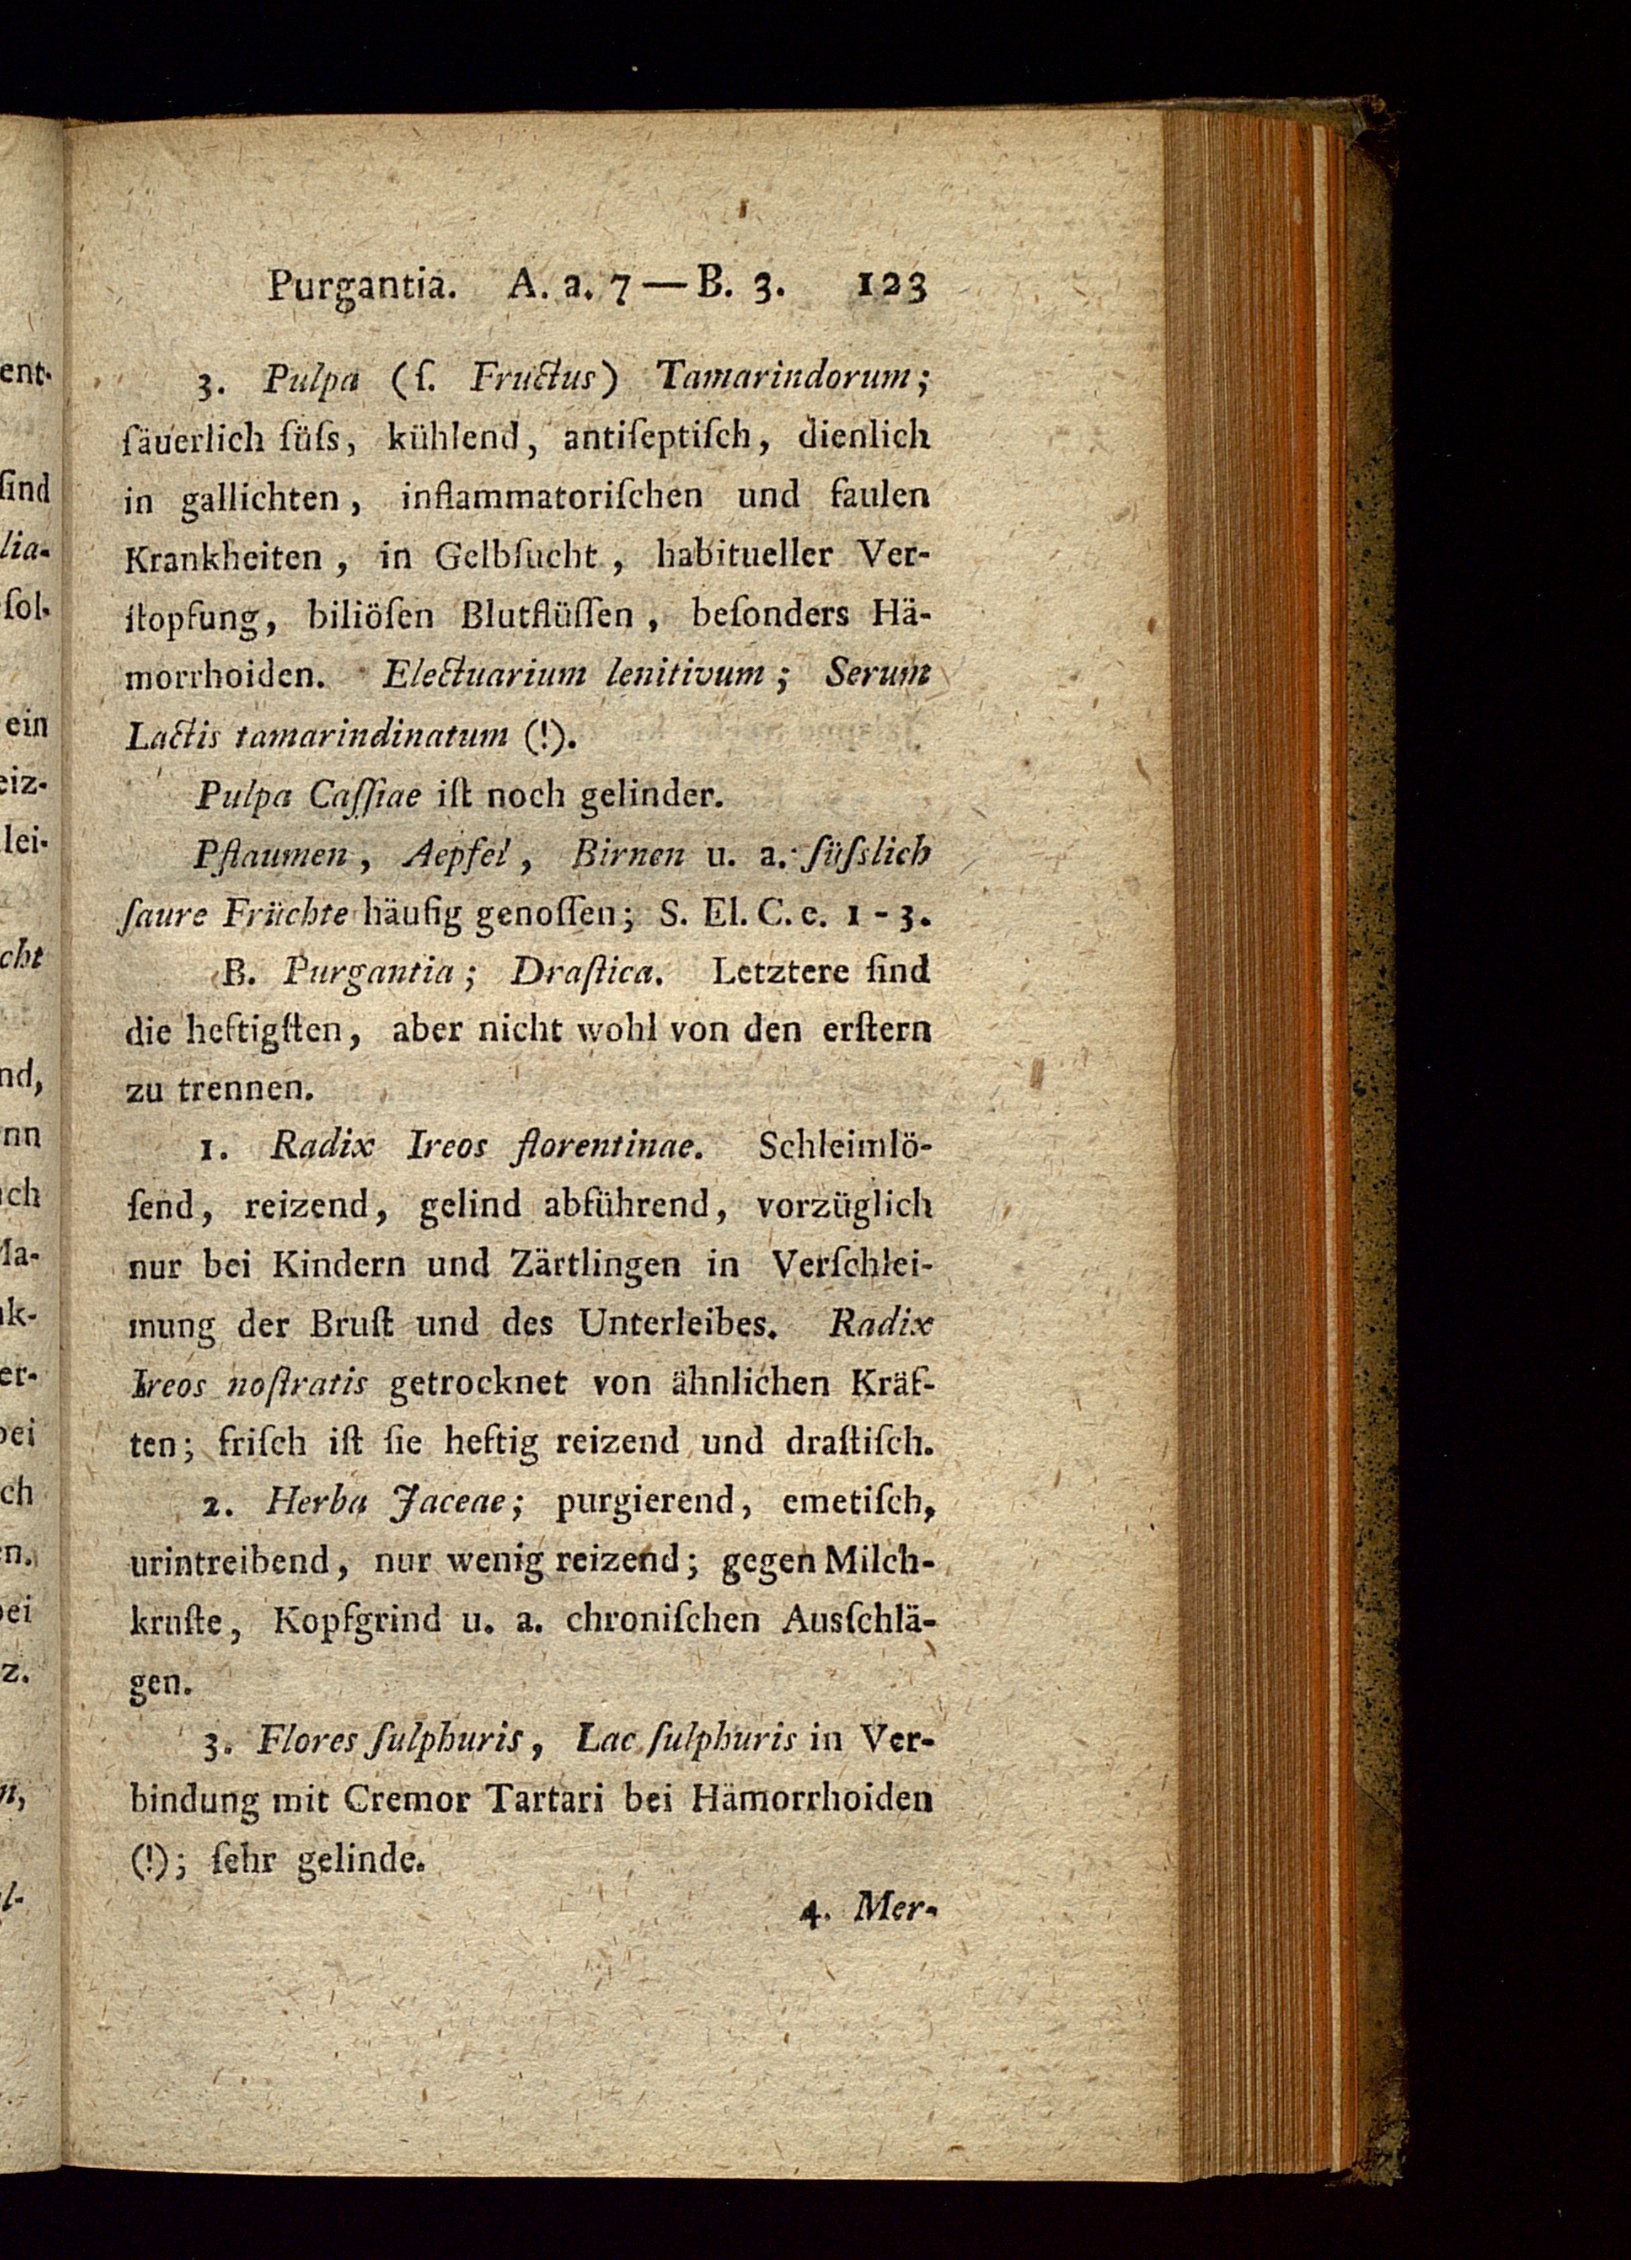 Purgantia. A. a. 7 — B. 3. 123
3. Pulpa (ſ. Fructus) Tamarindorum;
ſäuerlich ſüſs, kühlend, antiſeptiſch, dienlich
in gallichten, inflammatoriſchen und faulen
Krankheiten, in Gelbſucht, habitueller Ver-
ſtopfung, biliöſen Blutflüſſen, beſonders Hä-
morrhoiden. Electuarium lenitivum; Serum
Lactis tamarindinatum (!).
Pulpa Caſſiae iſt noch gelinder.
Pflaumen, Aepfel, Birnen u. a. ſüſslich
ſaure Früchte häufig genoſſen; S. El. C. e. 1 - 3.
B. Purgantia; Draſtica. Letztere ſind
die heftigſten, aber nicht wohl von den erſtern
zu trennen.
1. Radix Ireos florentinae. Schleimlö-
ſend, reizend, gelind abführend, vorzüglich
nur bei Kindern und Zärtlingen in Verſchlei-
mung der Bruſt und des Unterleibes. Radix
Ireos noſtratis getrocknet von ähnlichen Kräf-
ten; friſch iſt ſie heftig reizend und draſtiſch.
2. Herba Jaceae; purgierend, emetiſch,
urintreibend, nur wenig reizend; gegen Milch-
kruſte, Kopfgrind u. a. chroniſchen Ausſchlä-
gen.
3. Flores ſulphuris, Lac ſulphuris in Ver-
bindung mit Cremor Tartari bei Hämorrhoiden
(!); ſehr gelinde.
4. Mer-